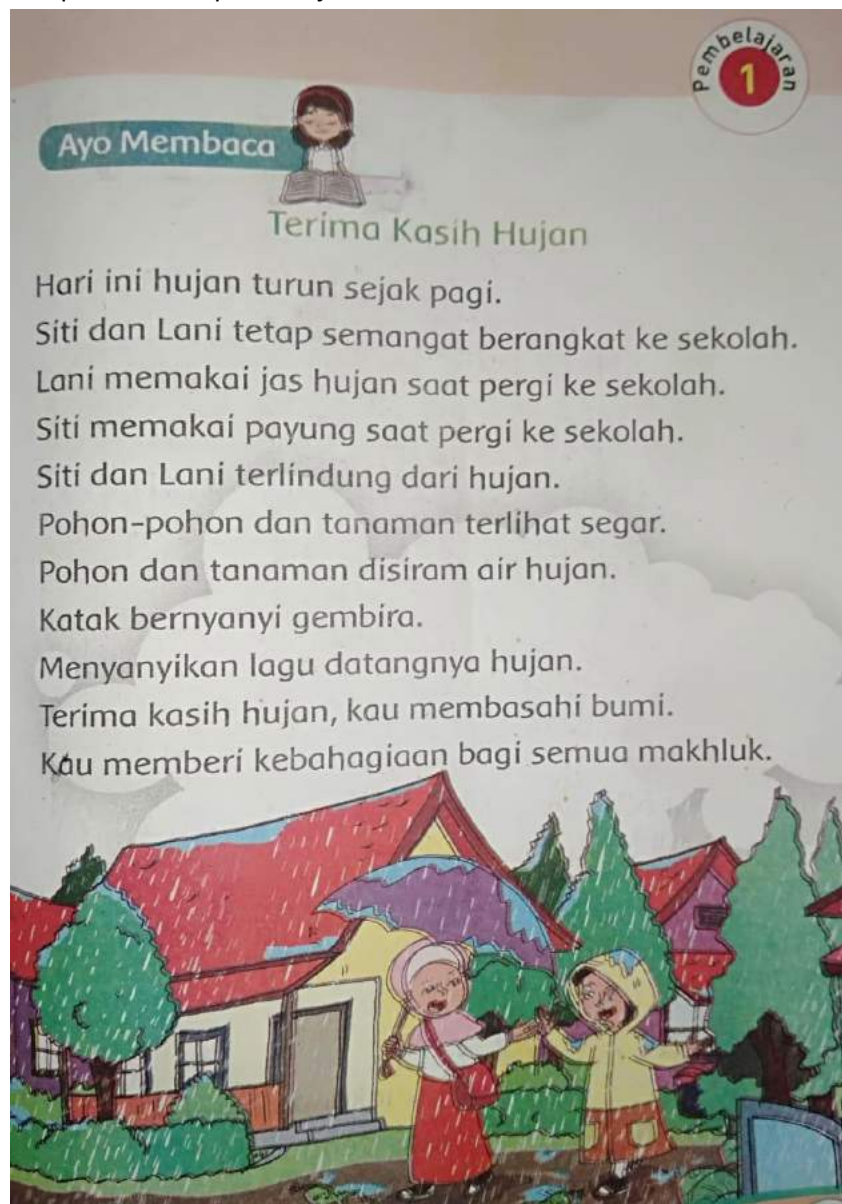 Pembelajaran
1
Ayo Membaca
Terima Kasih Hujan
Hari ini hujan turun sejak pagi.
Siti dan Lani tetap semangat berangkat ke sekolah.
Lani memakai jas hujan saat pergi ke sekolah.
Siti memakai payung saat pergi ke sekolah.
Siti dan Lani terlindung dari hujan.
Pohon-pohon dan tanaman terlihat segar.
Pohon dan tanaman disiram air hujan.
Katak bernyanyi gembira.
Menyanyikan lagu datangnya hujan.
Terima kasih hujan, kau membasahi bumi.
Kau memberi kebahagiaan bagi semua makhluk.